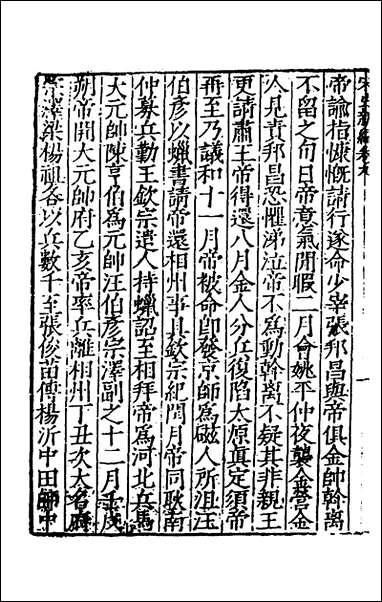 宋史新編卷九
帝諭指慷慨請行遂命少宰張邦昌與帝俱金帥斡离
不留之旬日帝意氣閒暇二月會姚平仲夜襲金營金
人見責邦昌恐懼涕泣帝不為動斡离不疑其非親王
更請肅王帝得還八月金人分兵復陷太原真定須帝
再至乃議和十一月帝被命即發京師為磁人所沮汪
伯彥以蠟書請帝還相州事具欽宗紀閏月帝同耿南
仲募兵勤王欽宗遣人持蠟詔至相拜帝為河北兵馬
大元帥陳亨伯為元帥汪伯彥宗澤副之十二月壬戌
朔帝開大元帥府乙亥帝率兵離相州丁丑次大名府
宗澤梁楊祖各以兵數千至張俊苗傅楊沂中田師中